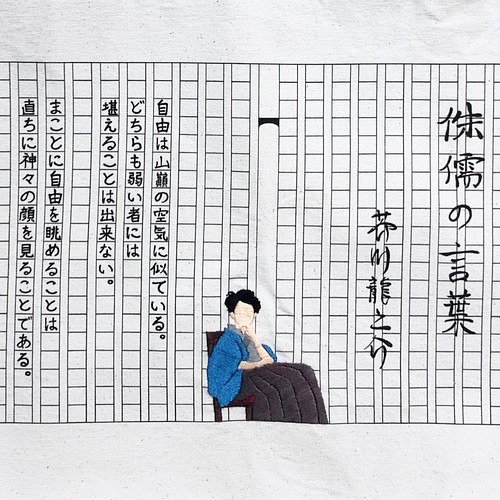 侏儒の言葉
芥川龍之介
自由は山巓の空気に似ている。
どちらも弱い者には
堪えることは出来ない。
まことに自由を眺めることは
直ちに神々の顔を見ることである。